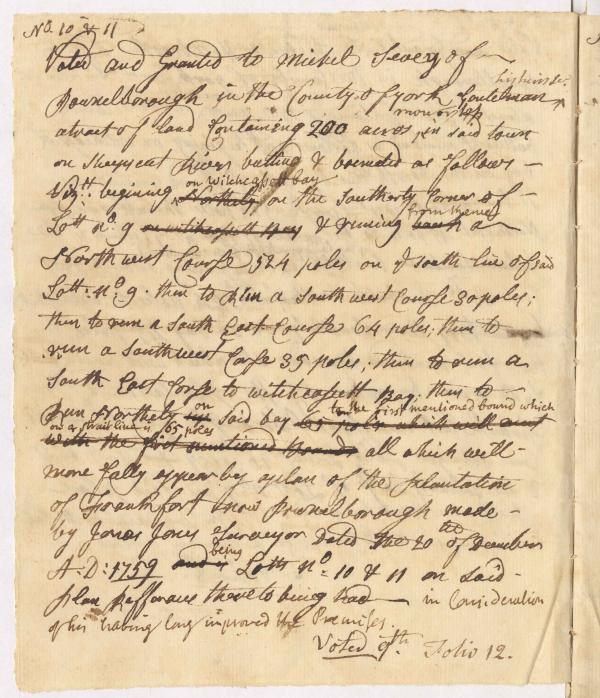 No. 10 & 11
Voted and Granted to Mickel Severy of
Pownelborough in the County of york Gentelman his heirs &c.
atract of land Containing 200 acres more or less in said town
on Sheepscut River butting & bounded as follows
Vizt. begining Northely on Witchcasett bay on the Southerly Corner of
Lott no. 9 on witchcasett Bay & runing back from thence a
North west Course 524 poles on ye south line of said
Lott. No. 9. then to Run a South west Course 30 poles;
then to run a South East Course 64 poles; then to
run a Southwest Corse 35 poles, then to run a
South East Corse to witchcasett Bay; then to
Run Northely on said bay 65 poles which will meet to the first mentioned bound which
on a strait line is 65 poles
with the first mentioned Bounds all which will
more fully appear by a plan of the plantation
of Frankfort now Pownelborough made
by Jonas Jones Surveyor Dated the 20th of December
A.D: 1759 and is being Lotts no. 10 & 11 on said
plan Refferance thereto being had in Consideration
of his having long improved the Premises.
Voted 9th. Folio 12.